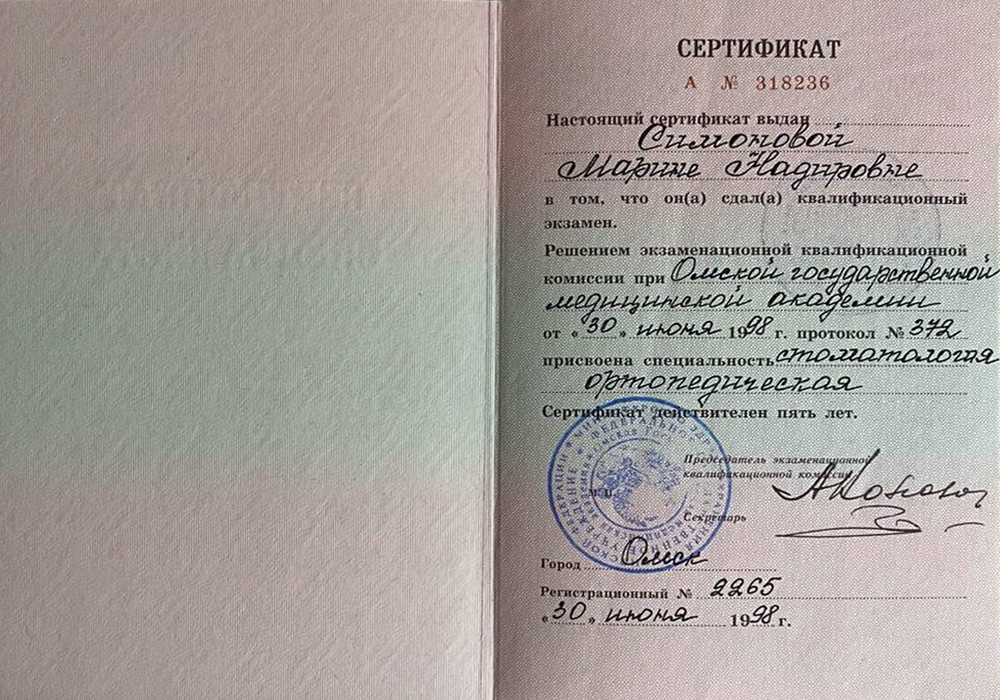 СЕРТИФИКАТ
А № 318236
Настоящий сертификат выдан
Симоновой
Марине Надировне
в том, что он(а) сдал(а) квалификационный
экзамен.
Решением экзаменационной квалификационной
комиссии при Омской государственной
медицинской академии
от «30» июня 1998 г. протокол № 372
присвоена специальность стоматология
ортопедическая
Сертификат действителен пять лет.
Председатель экзаменационной
квалификационной комиссии
М.П.
Секретарь
Город Омск
Регистрационный № 2265
«30» июня 1998 г.